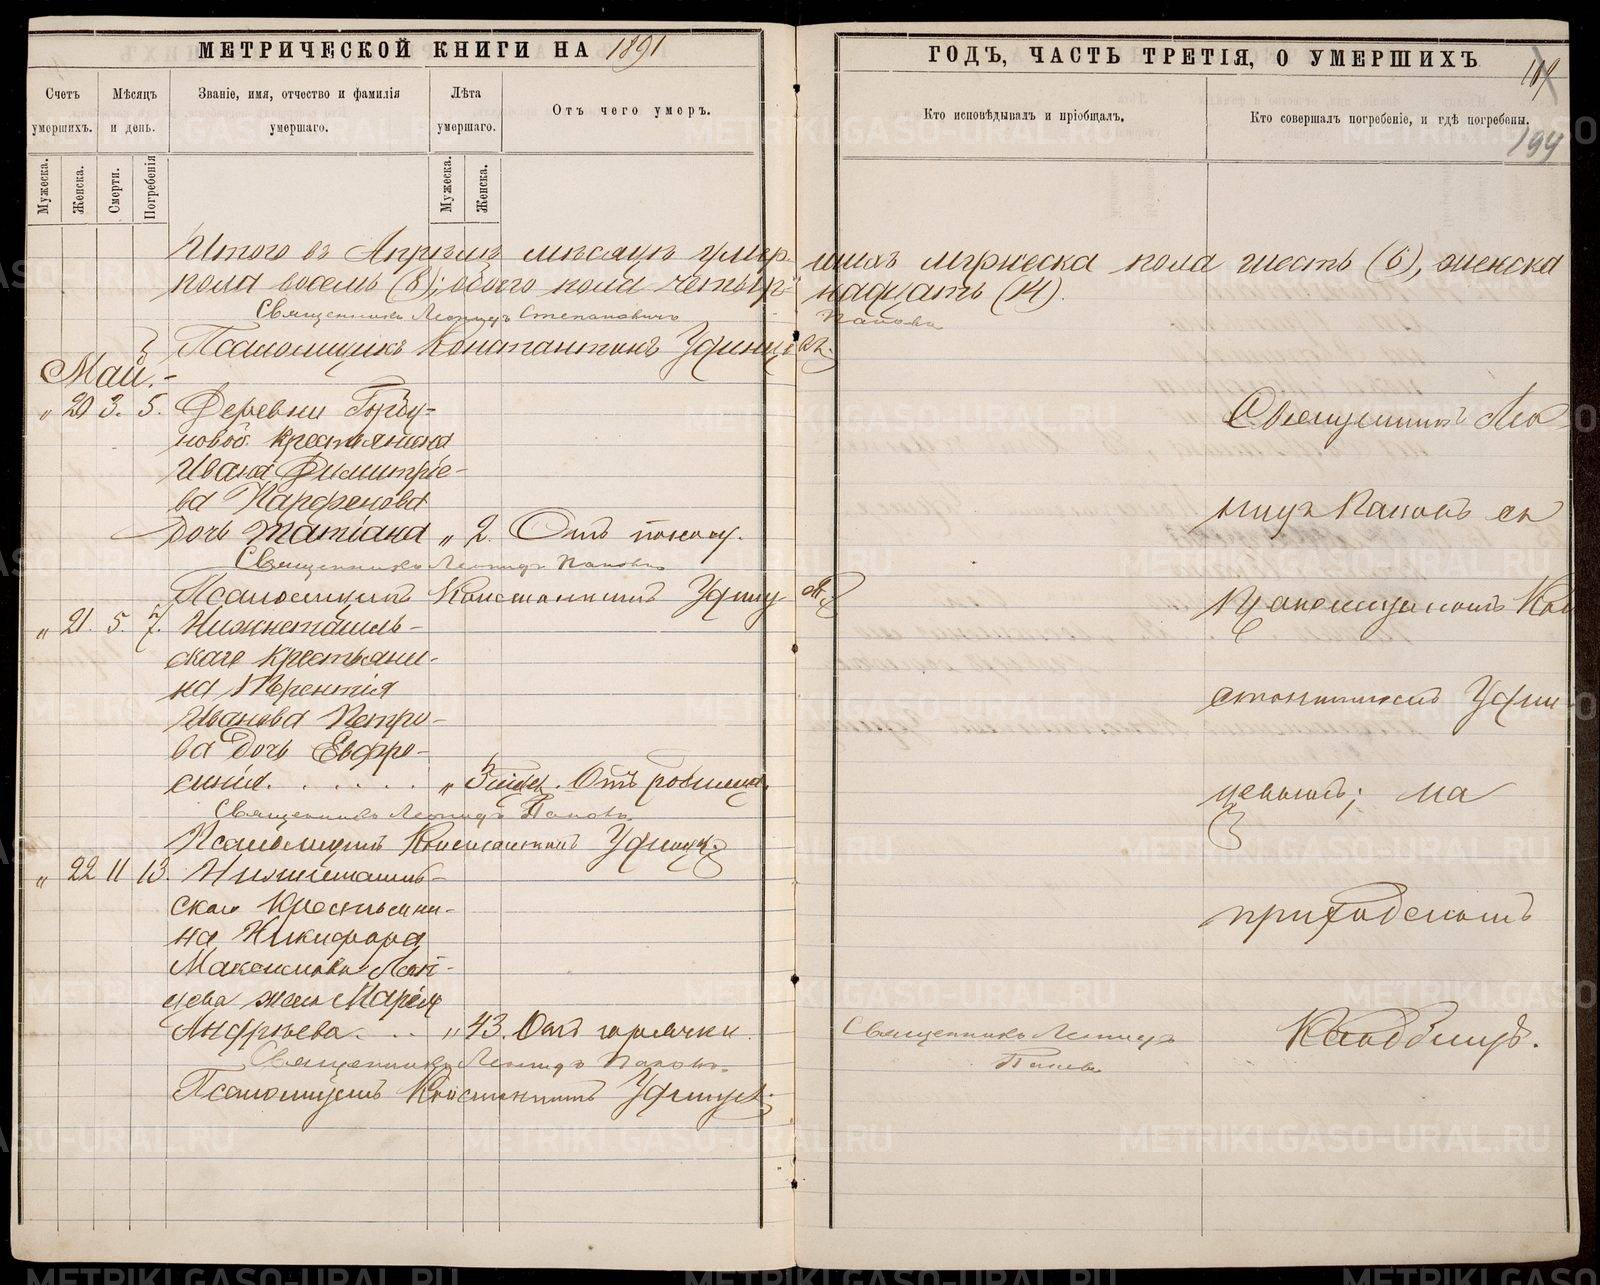 МЕТРИЧЕСКОЙ КНИГИ НА 1891
ГОДЪ, ЧАСТЬ ТРЕТІЯ, О УМЕРШИХЪ
109
199
Счетъ умершихъ.
Мѣсяцъ и день.
Званіе, имя, отчество и фамилія умершаго.
Лѣта умершаго.
Отъ чего умеръ.
Кто исповѣдывалъ и пріобщалъ.
Кто совершалъ погребеніе, и гдѣ погребены.
Мужеска.
Женска.
Смерти.
Погребенія
Мужеска.
Женска.
Итого въ Апрѣлѣ мѣсяцѣ умерших мужеска пола шесть (6), женска
пола восемь (8); обоего пола четырнадцать (14).
Священникъ Леонидъ Степановичъ Поповъ
Псаломщикъ Константинъ
Май.-
" 20 3. 5. Деревни Горбу-
новой крестьянина
Ивана Димитріе-
ва Парфенова
дочь Татіана " 2. Отъ поносу.
Священникъ Леонидъ Поповъ
Псаломщикъ Константинъ
" 21. 5. 7. Нижнетагиль-
скаго крестьяни-
на Терентія
Иванова Петро-
ва дочь Евфро-
синія. . . . . . "
Священникъ Леонидъ Поповъ
Псаломщикъ Константинъ
" 22 11 13. Нижнетагиль-
скаго крестьяни-
на Никифора
Максимова
жена Марія
Андреева. . . " 43. Отъ горячки
Священникъ Леонидъ Поповъ.
Псаломщикъ Константинъ
Священникъ Леонидъ
Поповъ
Священникъ Лео
нидъ Поповъ съ
Псаломщикомъ Кон
стантиномъ
на
приходскомъ
Кладбищѣ.
METRIKI.GASO-URAL.RU